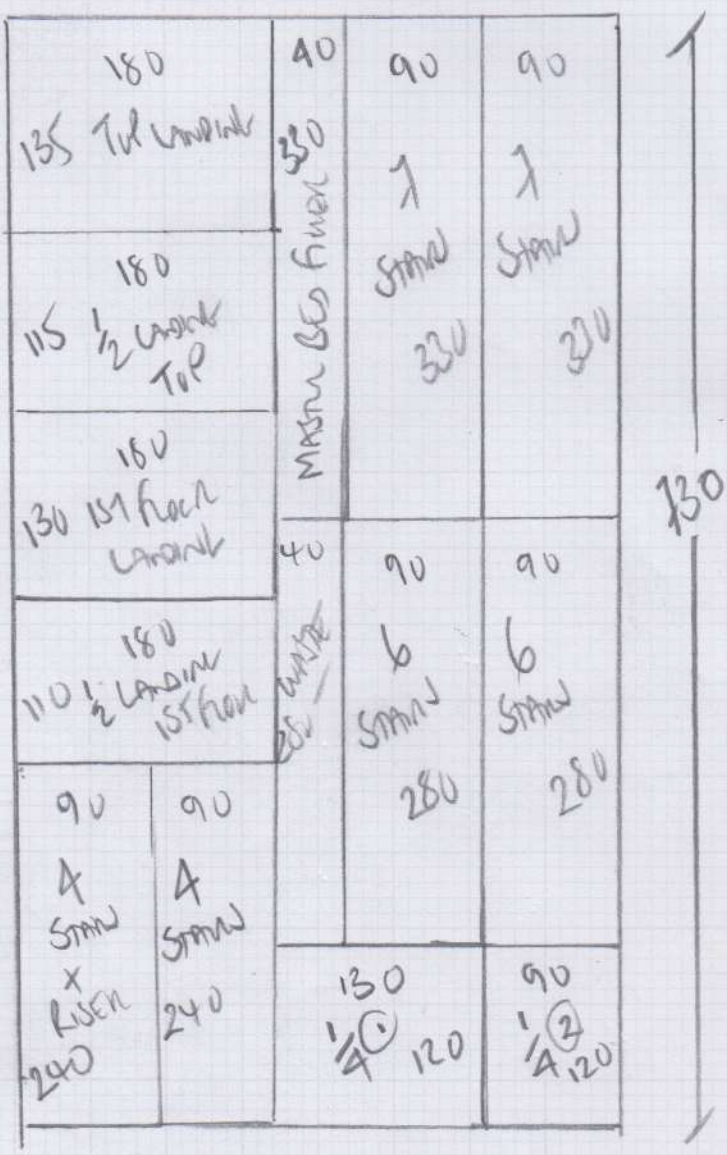 180
135 TOP LANDING
180
115 1/2 LANDING
TOP
180
130 1ST FLOOR
LANDING
180
110 1/2 LANDING
1ST FLOOR
90
4
STAIRS
X
RISER
240
90
4
STAIRS
240
40
330
MASTER BED FILLER
90
7
STAIRS
330
90
7
STAIRS
330
40
280 WASTE
90
6
STAIRS
280
90
6
STAIRS
280
130
1/4 ① 120
90
1/4 ② 120
730